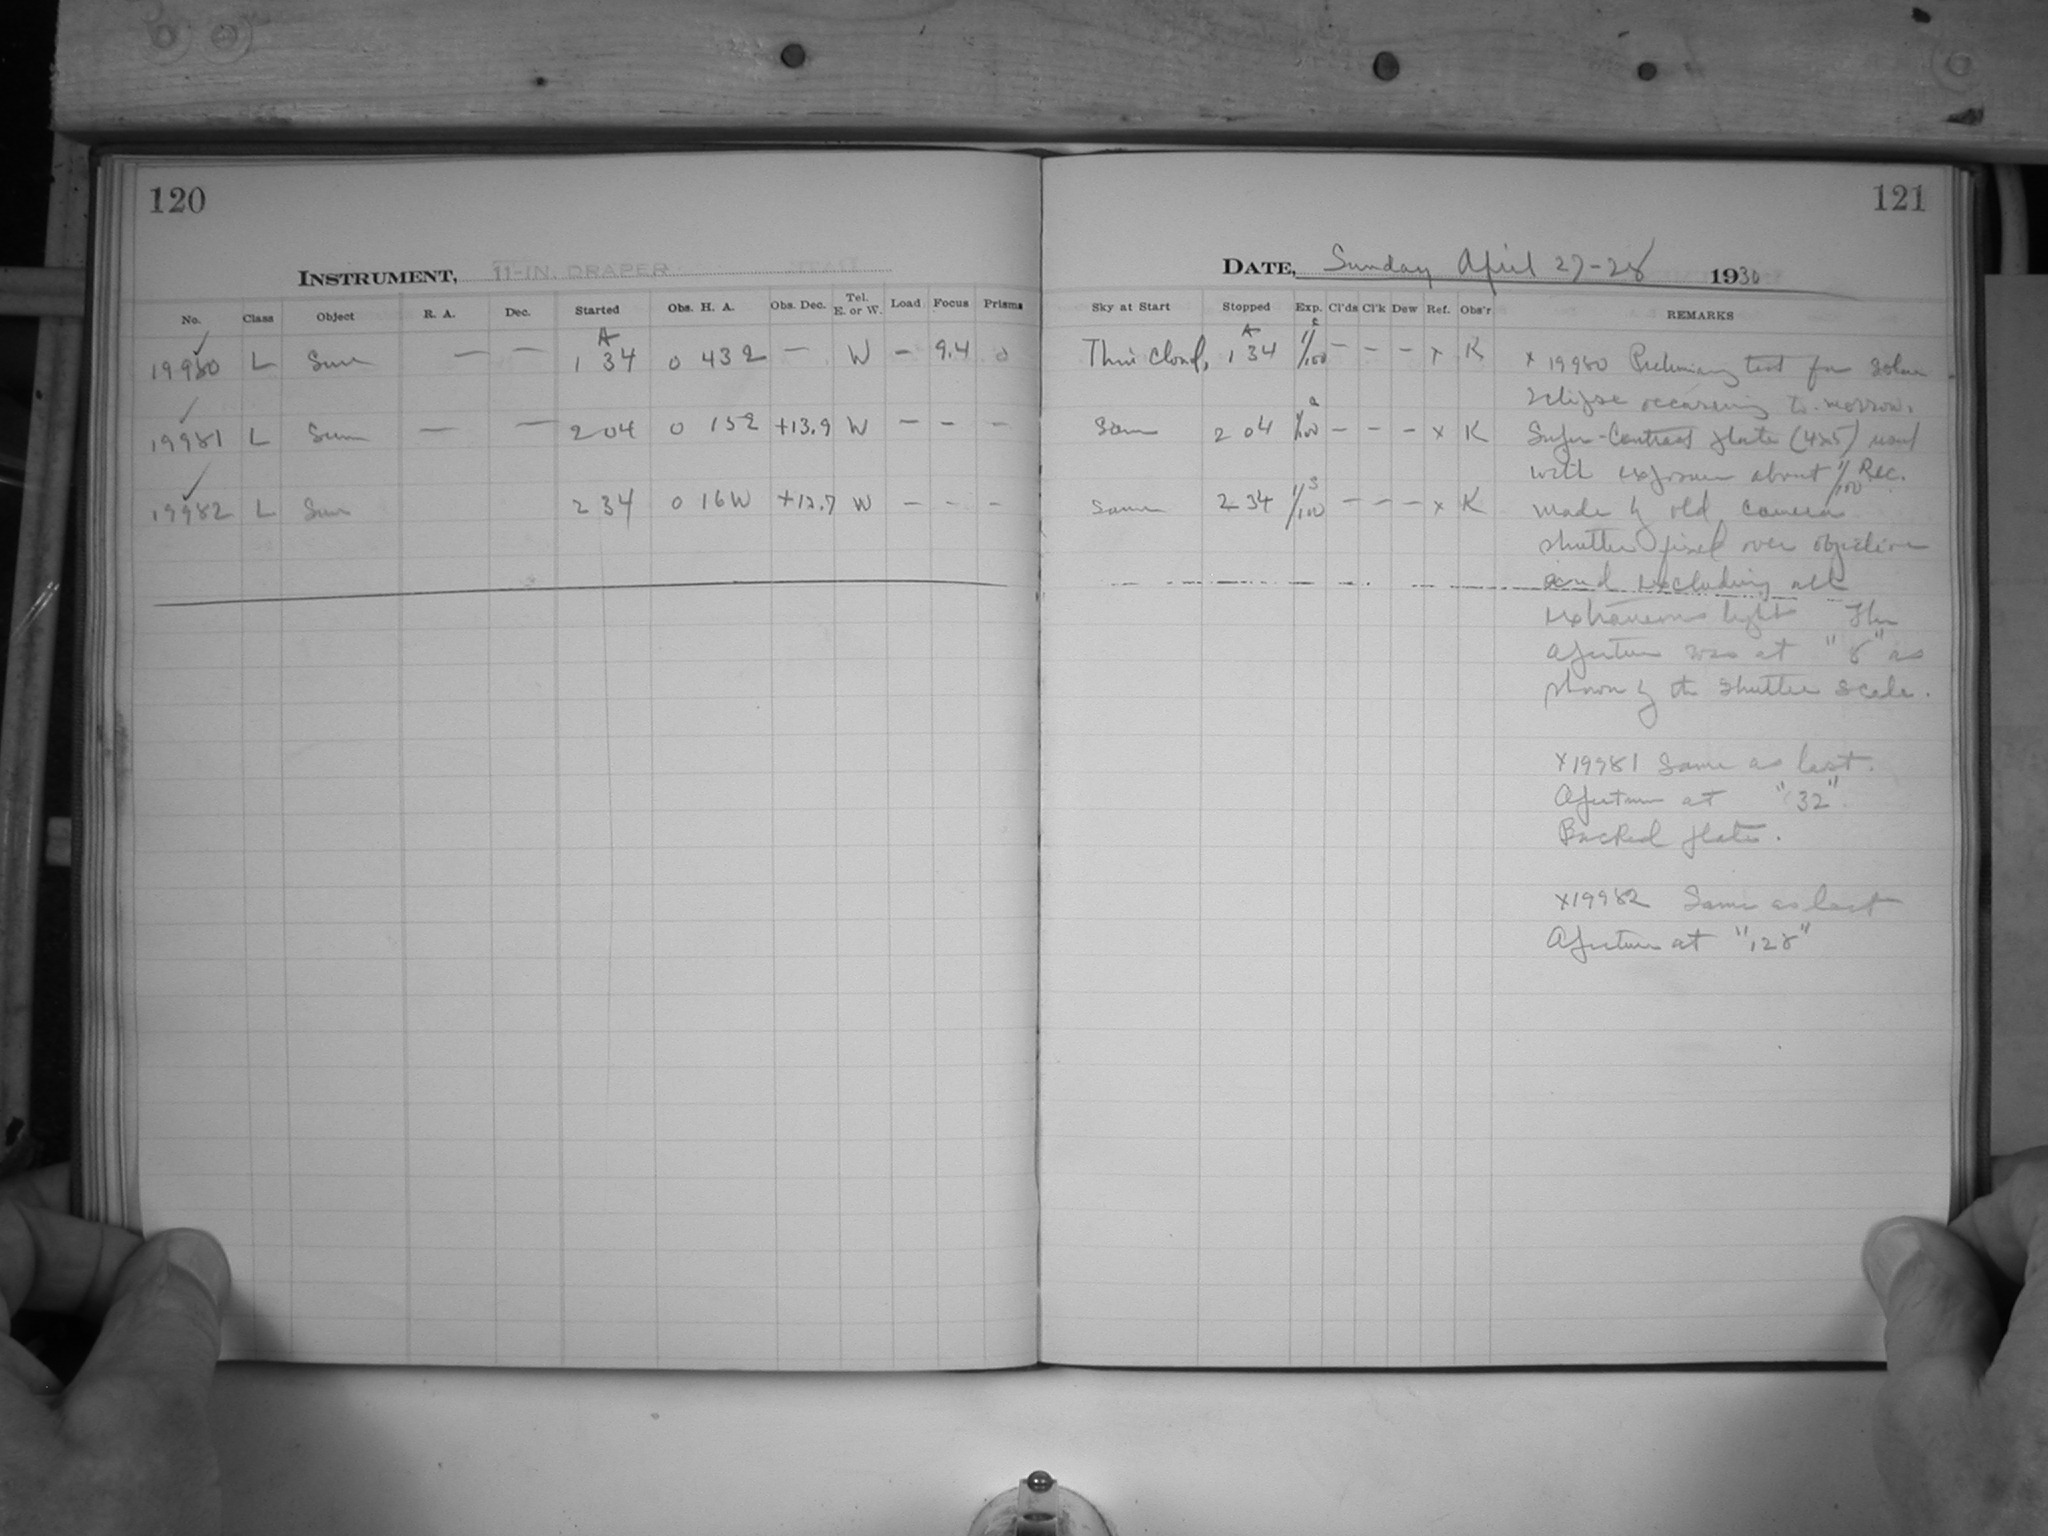 120
INSTRUMENT, 11-IN. DRAPER
No. Class Object R. A. Dec. Started Obs. H. A. Obs. Dec. Tel. E. or W. Load Focus Prisms
19980 L Sun — — A 1 34 0 43 — W — 9.4 0
19981 L Sun — — 2 04 0 15 +13.9 W — — —
19982 L Sun 2 34 0 16 W W — — —
121
DATE, Sunday April 27-28 1930
Sky at Start Stopped Exp. Cl'ds Cl'k Dew Ref. Obs'r REMARKS
Thin Cloud, A 1 34 1/100 — — — x K
Same 2 04 1/100 — — — x K
Same 2 34 s 1/100 — — — x K
x 19980 Preliminary test for Solar
Eclipse occurring to-morrow.
Super-Contrast plate (4x5) used
with exposure about 1/100 sec.
made by old camera
shutter fixed over objective
and excluding all
extraneous light The
Aperture was at "8" as
shown by the shutter scale.
x19981 Same as last.
Aperture at "32"
Backed plate.
x19982 Same as last
Aperture at "128"